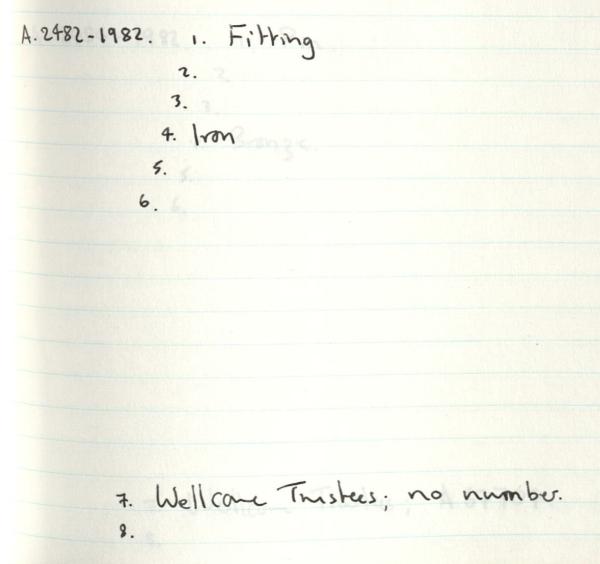 A.2482-1982. 1. Fitting
2.
3.
4. Iron
5.
6.
7. Wellcome Trustees; no number.
8.